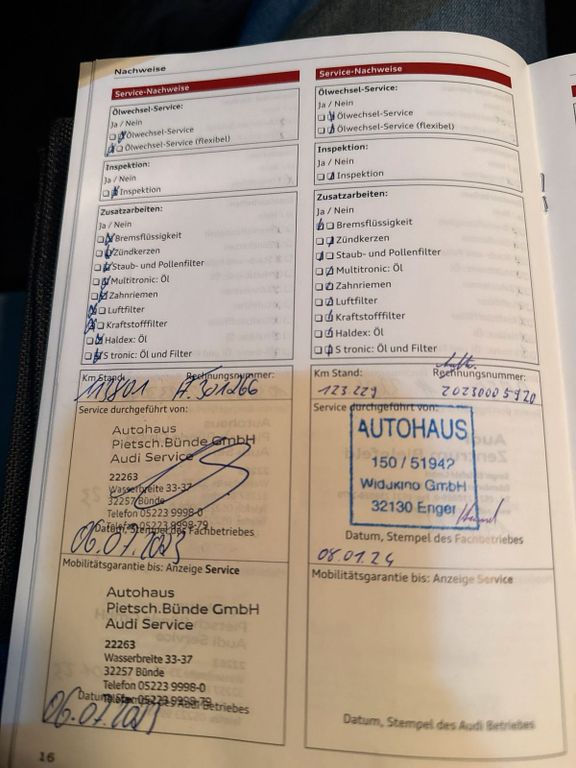 Nachweise
Service-Nachweise
Ölwechsel-Service:
Ja / Nein
Ölwechsel-Service
Ölwechsel-Service (flexibel)
Inspektion:
Ja / Nein
Inspektion
Zusatzarbeiten:
Ja / Nein
Bremsflüssigkeit
Zündkerzen
Staub- und Pollenfilter
Multitronic: Öl
Zahnriemen
Luftfilter
Kraftstofffilter
Haldex: Öl
S tronic: Öl und Filter
Km Stand: Rechnungsnummer:
118801
Service durchgeführt von:
Autohaus
Pietsch.Bünde GmbH
Audi Service
22263
Wasserbreite 33-37
32257 Bünde
Telefon 05223 9998-0
Telefax 05223 9998-79
Datum, Stempel des Fachbetriebes
06.07.2023
Mobilitätsgarantie bis: Anzeige Service
Autohaus
Pietsch.Bünde GmbH
Audi Service
22263
Wasserbreite 33-37
32257 Bünde
Telefon 05223 9998-0
Telefax 05223 9998-79
Datum, Stempel des Audi Betriebes
06.07.2023
16
Service-Nachweise
Ölwechsel-Service:
Ja / Nein
Ölwechsel-Service
Ölwechsel-Service (flexibel)
Inspektion:
Ja / Nein
Inspektion
Zusatzarbeiten:
Ja / Nein
Bremsflüssigkeit
Zündkerzen
Staub- und Pollenfilter
Multitronic: Öl
Zahnriemen
Luftfilter
Kraftstofffilter
Haldex: Öl
S tronic: Öl und Filter
Km Stand: Rechnungsnummer:
123 229 2023000 5920
Service durchgeführt von:
AUTOHAUS
150 / 51942
Widukind GmbH
32130 Enger
Datum, Stempel des Fachbetriebes
08.01.24
Mobilitätsgarantie bis: Anzeige Service
Datum, Stempel des Audi Betriebes